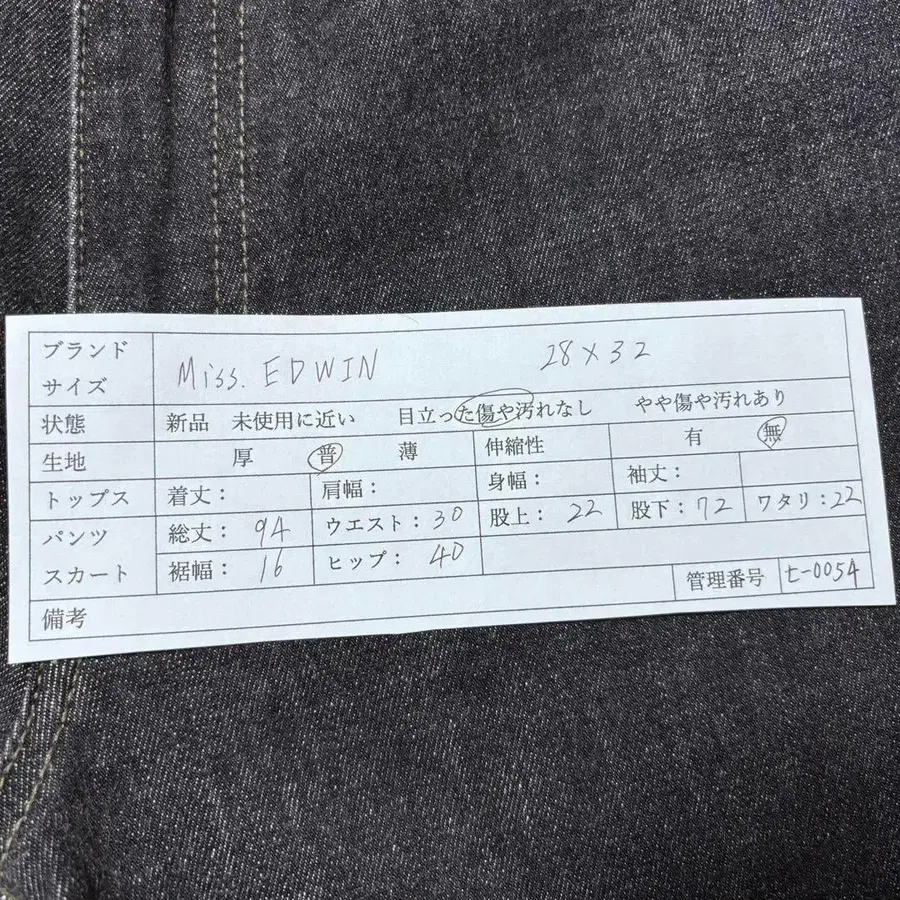 ブランド
サイズ
Miss. EDWIN 28×32
状態 新品 未使用に近い 目立った傷や汚れなし やや傷や汚れあり
生地 厚 普 薄 伸縮性 有 無
トップス 着丈: 肩幅: 身幅: 袖丈:
パンツ
スカート
総丈: 94 ウエスト: 30 股上: 22 股下: 72 ワタリ: 22
裾幅: 16 ヒップ: 40
管理番号 t-0054
備考